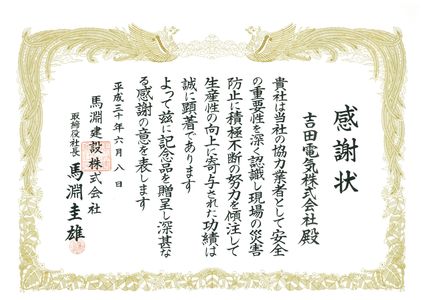 感謝状
吉田電気株式会社殿
貴社は当社の協力業者として安全
の重要性を深く認識し現場の災害
防止に積極不断の努力を傾注して
生産性の向上に寄与された功績は
誠に顕著であります
よって茲に記念品を贈呈し深甚な
る感謝の意を表します
平成三十年六月八日
馬淵建設株式会社
取締役社長 馬淵圭雄